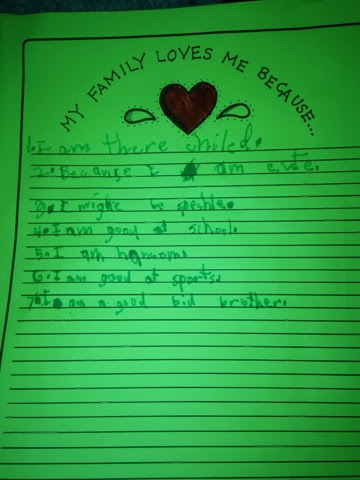 MY FAMILY LOVES ME BECAUSE...
1. I am there chiled.
2. Because I am cute.
3. I might be speshle.
4. I am good at school.
5. I am hansom.
6. I am good at sports.
7. I am a good bid brother.